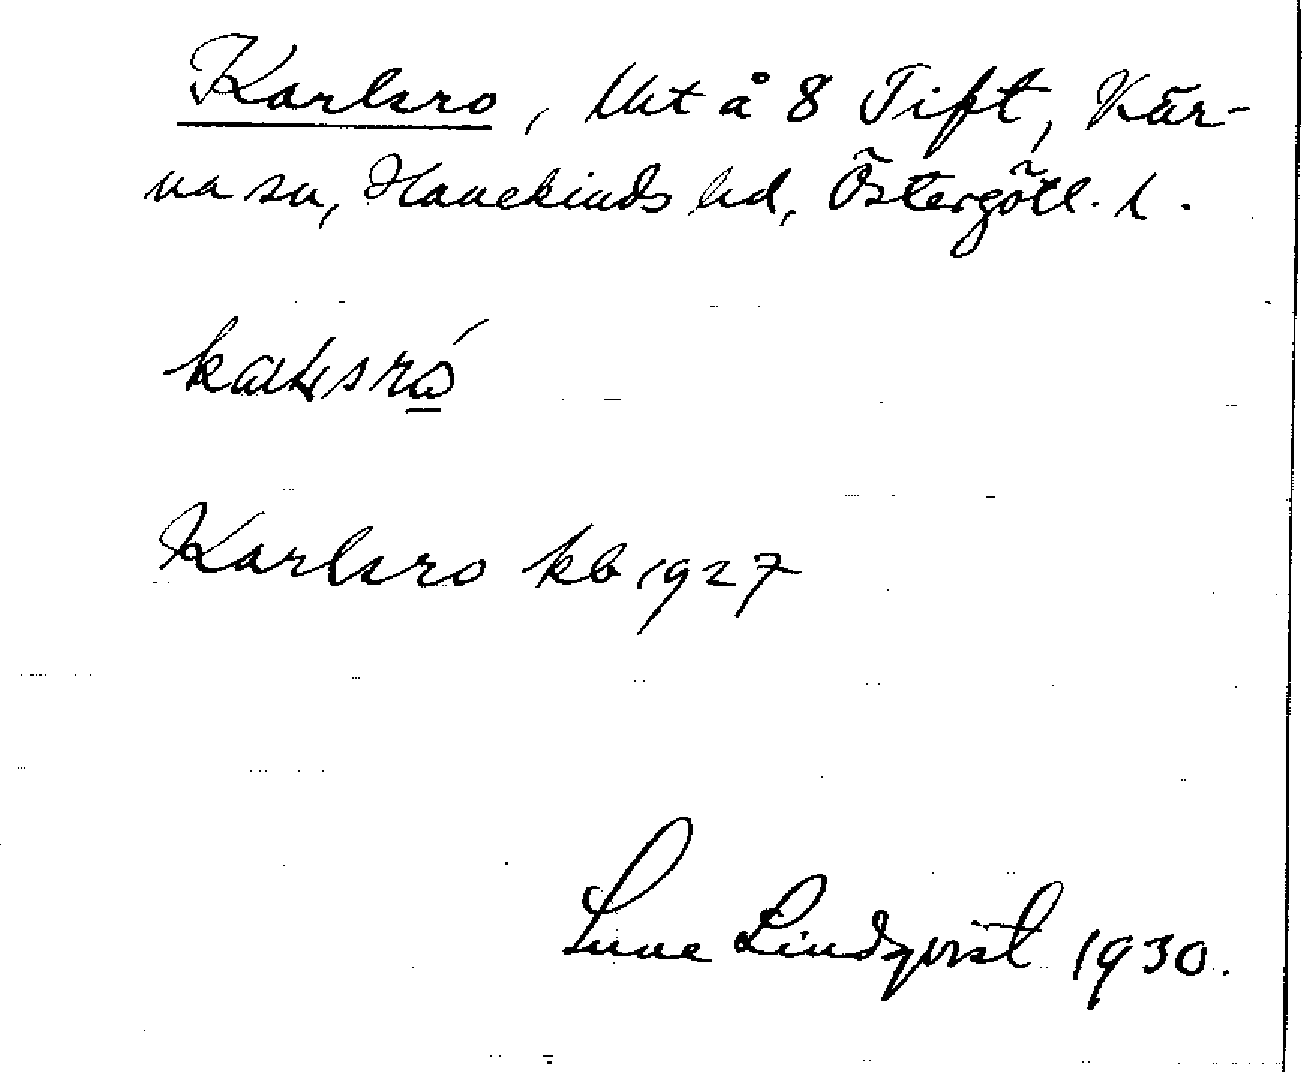 Karlsro, Utt å 8 Tift, Kär-
na sn, Hanekinds hd, Östergötl. l.
Karlsro kb 1927
Sune Lindqvist 1930.